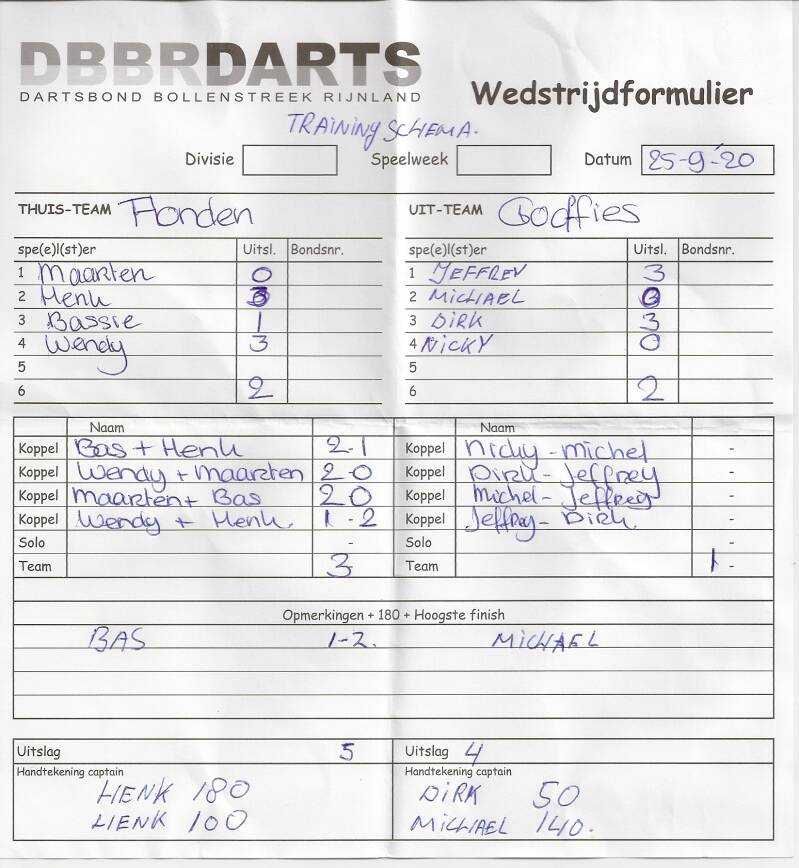 DBBRDARTS
DARTSBOND BOLLENSTREEK RIJNLAND
Wedstrijdformulier
TRAINING SCHEMA.
Divisie Speelweek Datum 25-9-'20
THUIS-TEAM Honden UIT-TEAM Goffies
spe(e)l(st)er Uitsl. Bondsnr. spe(e)l(st)er Uitsl. Bondsnr.
1 Maarten 0 1 JEFFREY 3
2 Henk 3 2 MICHAEL 0
3 Bassie 1 3 DIRK 3
4 Wendy 3 4 NICKY 0
5 5
6 2 6 2
Naam Naam
Koppel Bas + Henk 2-1 Koppel Nicky - michel -
Koppel Wendy + Maarten 2-0 Koppel Dirk - Jeffrey -
Koppel Maarten + Bas 20 Koppel Michel - Jeffrey -
Koppel Wendy + Henk. 1-2 Koppel Jeffrey - Dirk -
Solo - Solo -
Team 3 Team 1 -
Opmerkingen + 180 + Hoogste finish
BAS 1-2. MICHAEL
Uitslag 5 Uitslag 4
Handtekening captain Handtekening captain
HENK 180 DIRK 50
HENK 100 MICHAEL 140.